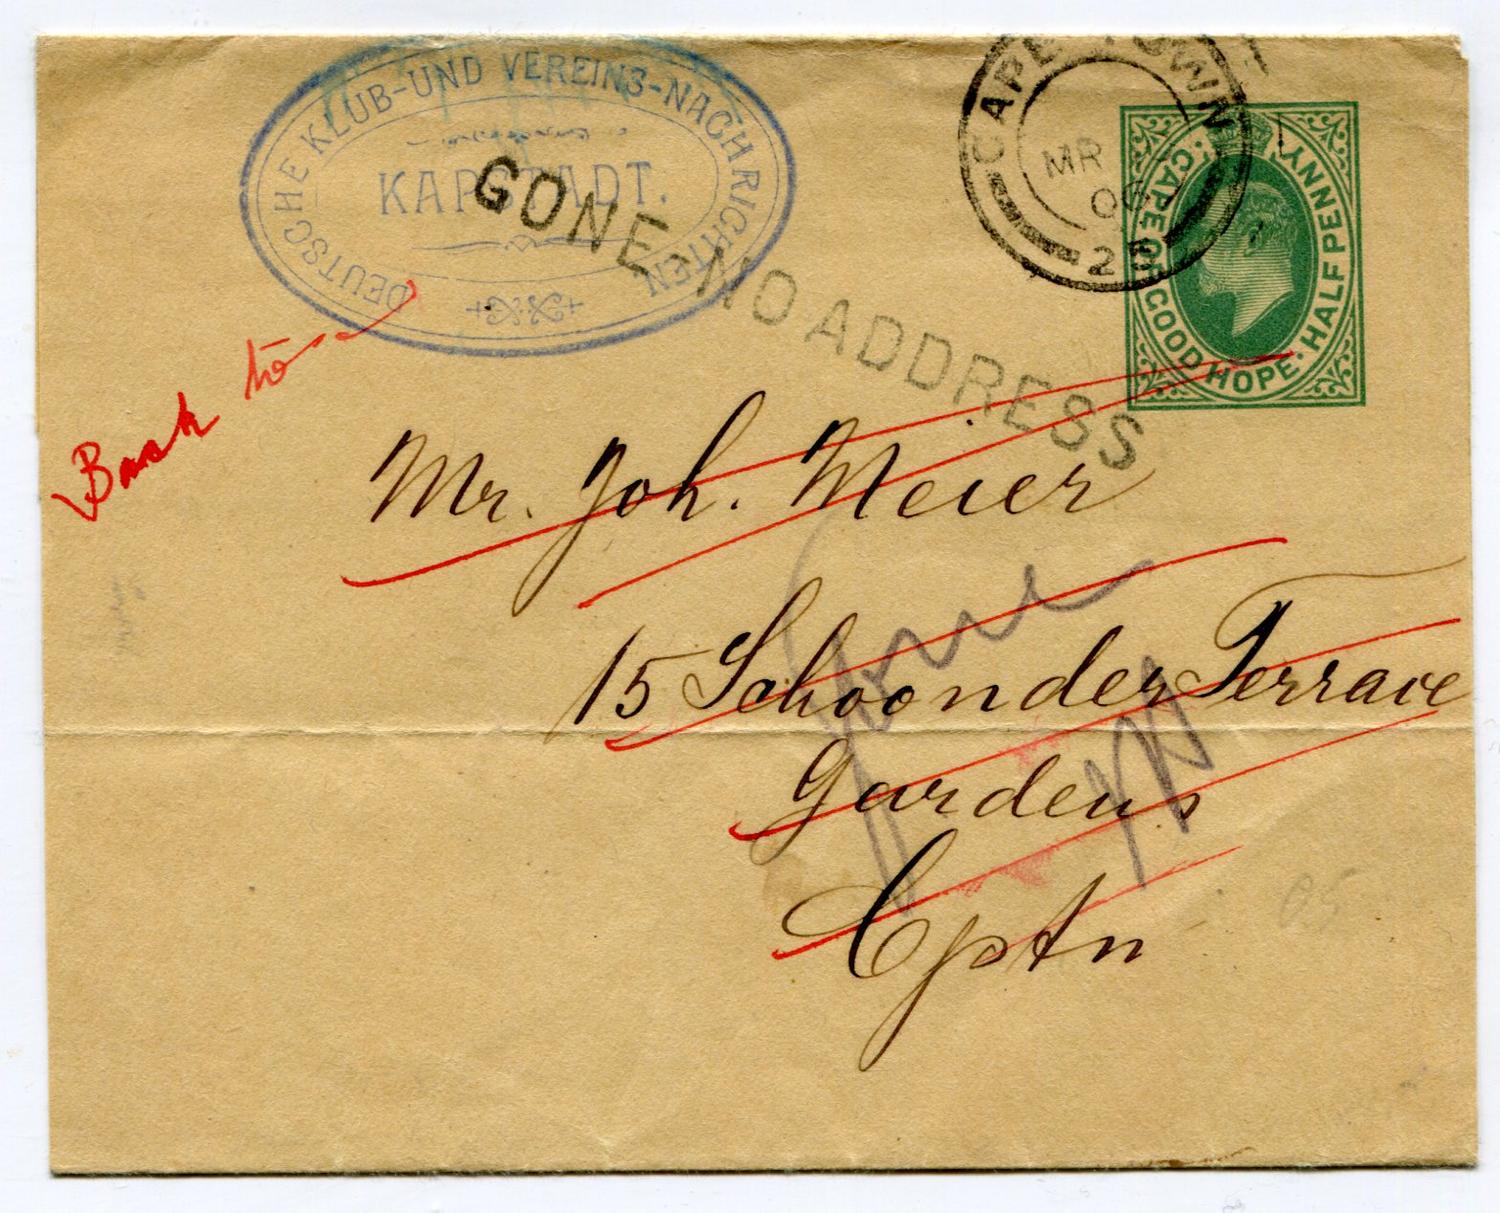 DEUTSCHE KLUB-UND VEREINS-NACHRICHTEN
KAPSTADT.
CAPE TOWN
MR
06
CAPE OF GOOD HOPE. HALF PENNY.
GONE-NO ADDRESS
Back to
Mr. Joh. Meier
15 Schoonder Terrace
Gardens
Cptn
Gone